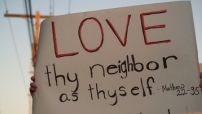 LOVE
thy neighbor
as thyself - Matthew
22:35